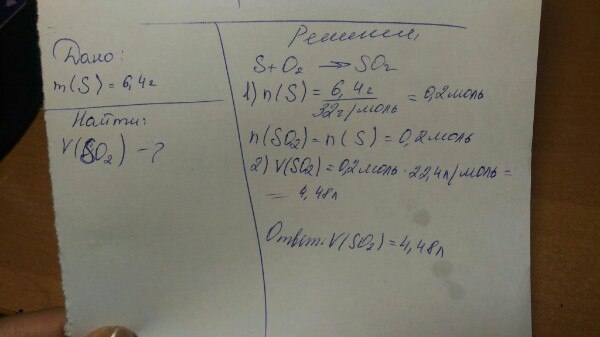 Дано:
m(S) = 6,4г
Найти:
V(SO₂) - ?
Решение
S + O₂ → SO₂
1) n(S) = 6,4г / 32г/моль = 0,2моль
n(SO₂) = n(S) = 0,2моль
2) V(SO₂) = 0,2моль · 22,4л/моль =
= 4,48л
Ответ: V(SO₂) = 4,48л